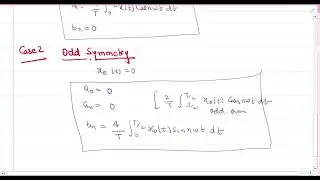 T ∫0 x(t) Cos nωt dt
bn = 0
Case 2 Odd Symmetry
xe(t) = 0
a0 = 0
an = 0 [ 2/T ∫-T/2^T/2 x0(t) Cos nωt dt
odd
bn = 4/T ∫0^T/2 x0(t) sin nωt dt